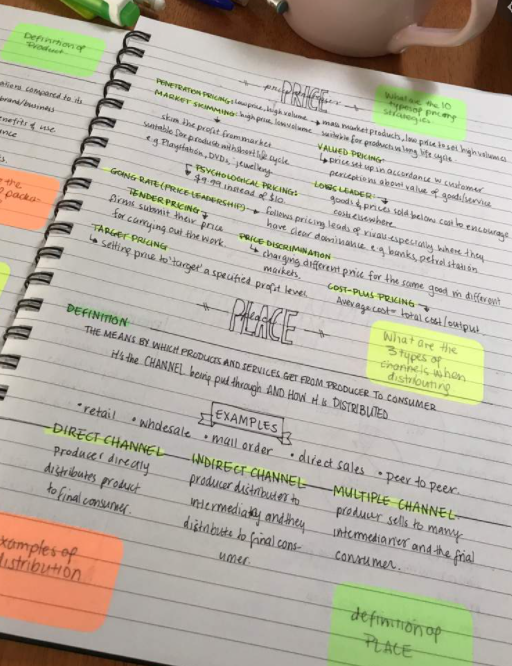 Definition of
Product.
ations compared to its
brand/business
enefits of use
ance
ts.
e the
packa
PRICE
What are the 10
types of pricing
strategies
PENETRATION PRICING: low price, high volume → mass market products, low price to sell high volumes
MARKET SKIMMING: high price, low volume suitable for products w long life cycle.
skim the profit from market
suitable for products with short life cycle
e.g Playstation, DVDs, jewellery
VALUED PRICING:
↳ price set up in accordance w customer
perceptions about value of goods/service
PSYCHOLOGICAL PRICING:
$9.99 instead of $10.
LOSS LEADER:
goods & prices sold below cost to encourage
elsewhere
GOING RATE (PRICE LEADERSHIP) → follows pricing leads of rivals especially where they
have clear dominance. e.g. banks, petrol station
TENDER PRICING
firms submit their price
for carrying out the work.
PRICE DISCRIMINATION
↳ charging different price for the same good in different
markets.
TARGET PRICING
↳ setting price to 'target' a specified profit level.
COST-PLUS PRICING →
Average cost = total cost/output
PLACE
What are the
3 types of
channels when
distributing
DEFINITION
THE MEANS BY WHICH PRODUCTS AND SERVICES GET FROM PRODUCER TO CONSUMER
It's the CHANNEL being put through AND HOW it is DISTRIBUTED
EXAMPLES
• retail • wholesale • mail order • direct sales • peer to peer
DIRECT CHANNEL
producer directly
distributes product
to final consumer.
INDIRECT CHANNEL
producer distributer to
intermediatary and they
distribute to final cons-
umer.
MULTIPLE CHANNEL
producer sells to many
intermediarier and the final
consumer.
xamples of
distribution
definition of
PLACE